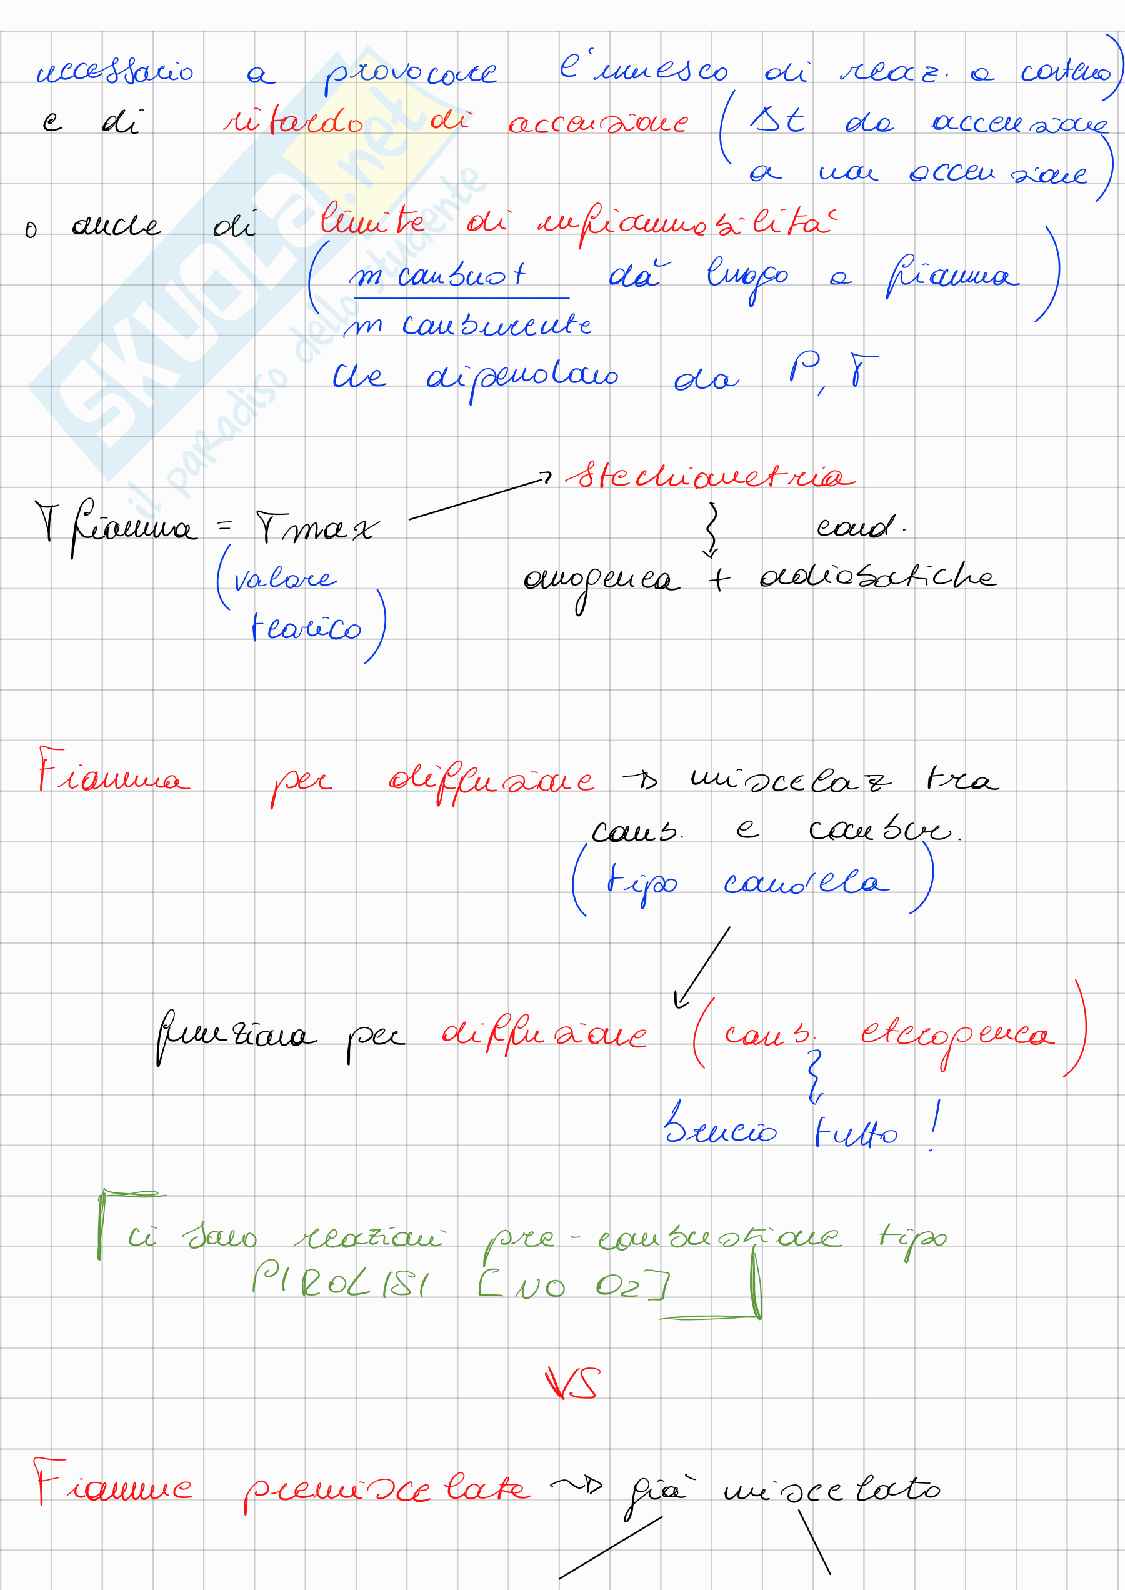 necessario a provocare l'innesco di reaz. a catena)
e di ritardo di accensione (Δt da accensione
a non accensione)
o anche di limite di infiammabilità
(m combust dà luogo a fiamma)
m comburente
che dipendono da P, T
stechiometria
T fiamma = Tmax
cond.
(valore
omogenea + adiabatiche
teorico)
Fiamma per diffusione → miscelaz tra
comb. e combur.
(tipo candela)
funziona per diffusione (comb. eterogenea)
brucio tutto!
ci sono reazioni pre-combustione tipo
PIROLISI [NO O2]
VS
Fiamme premiscelate → già miscelato
SKUOLA.net
il paradiso dello studente